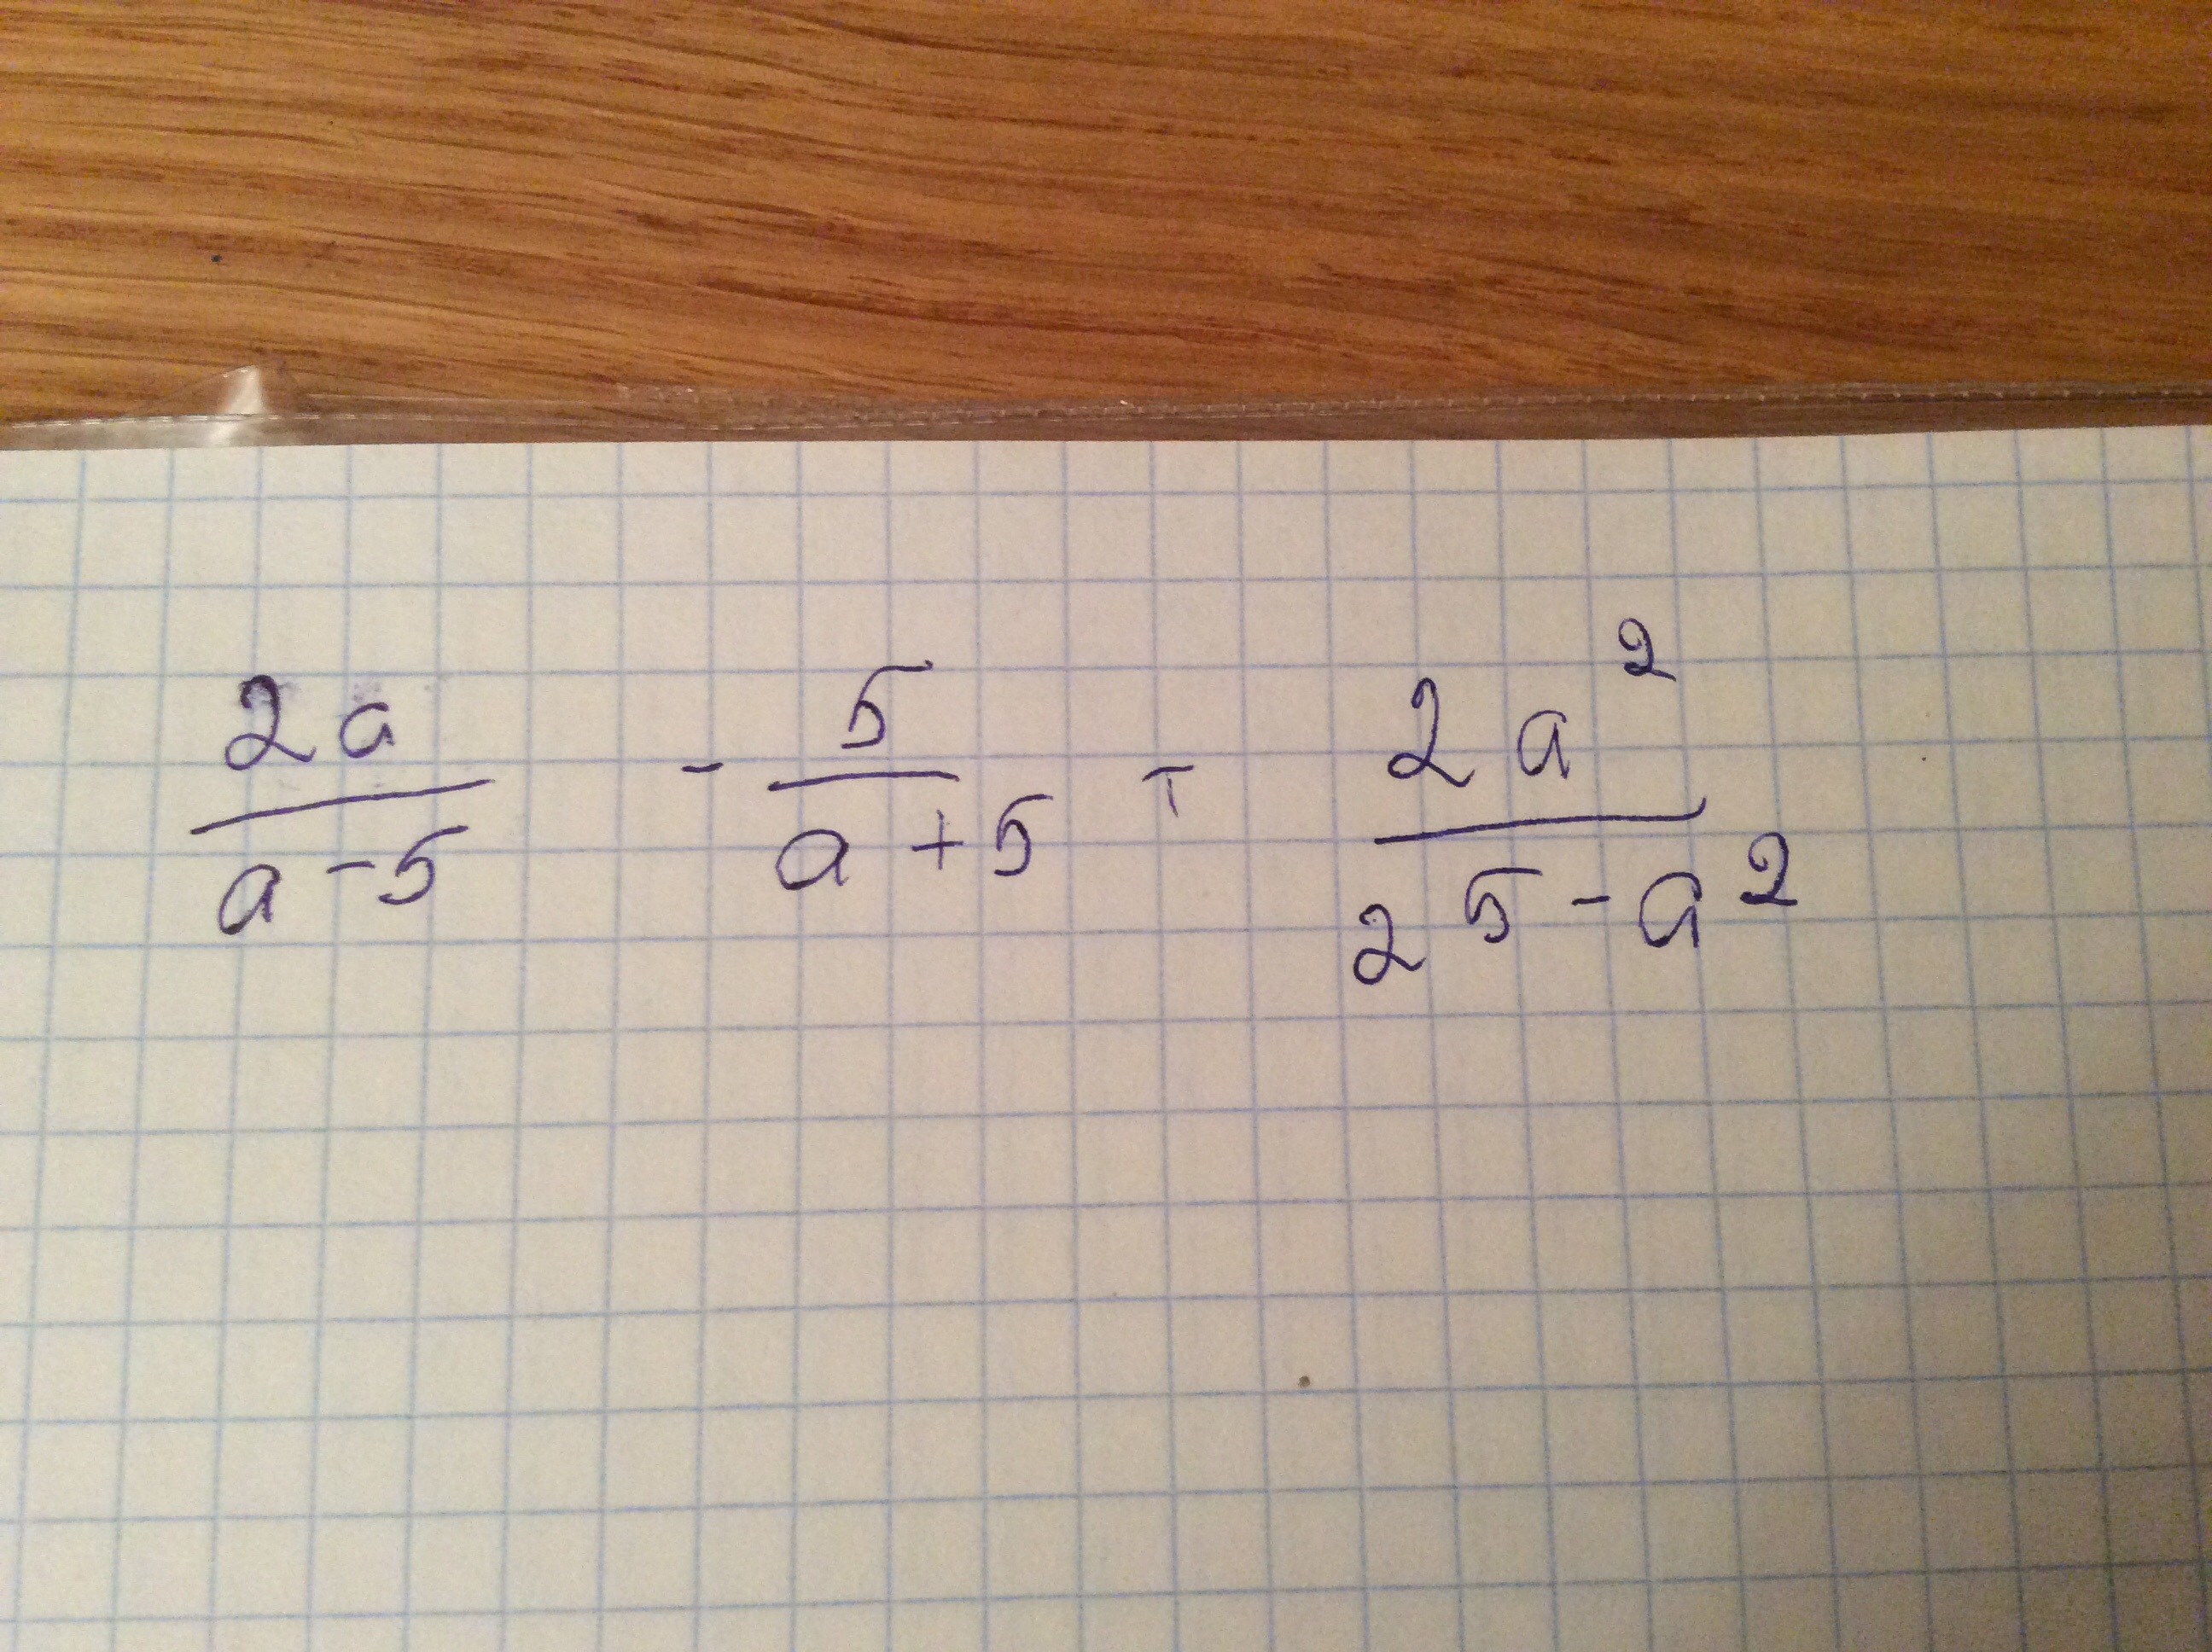 2a/(a-5) - 5/(a+5) + 2a²/(25-a²)